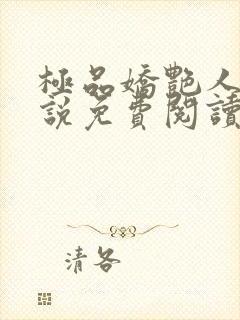 極品嬌艷人
說免費閱讀
清各